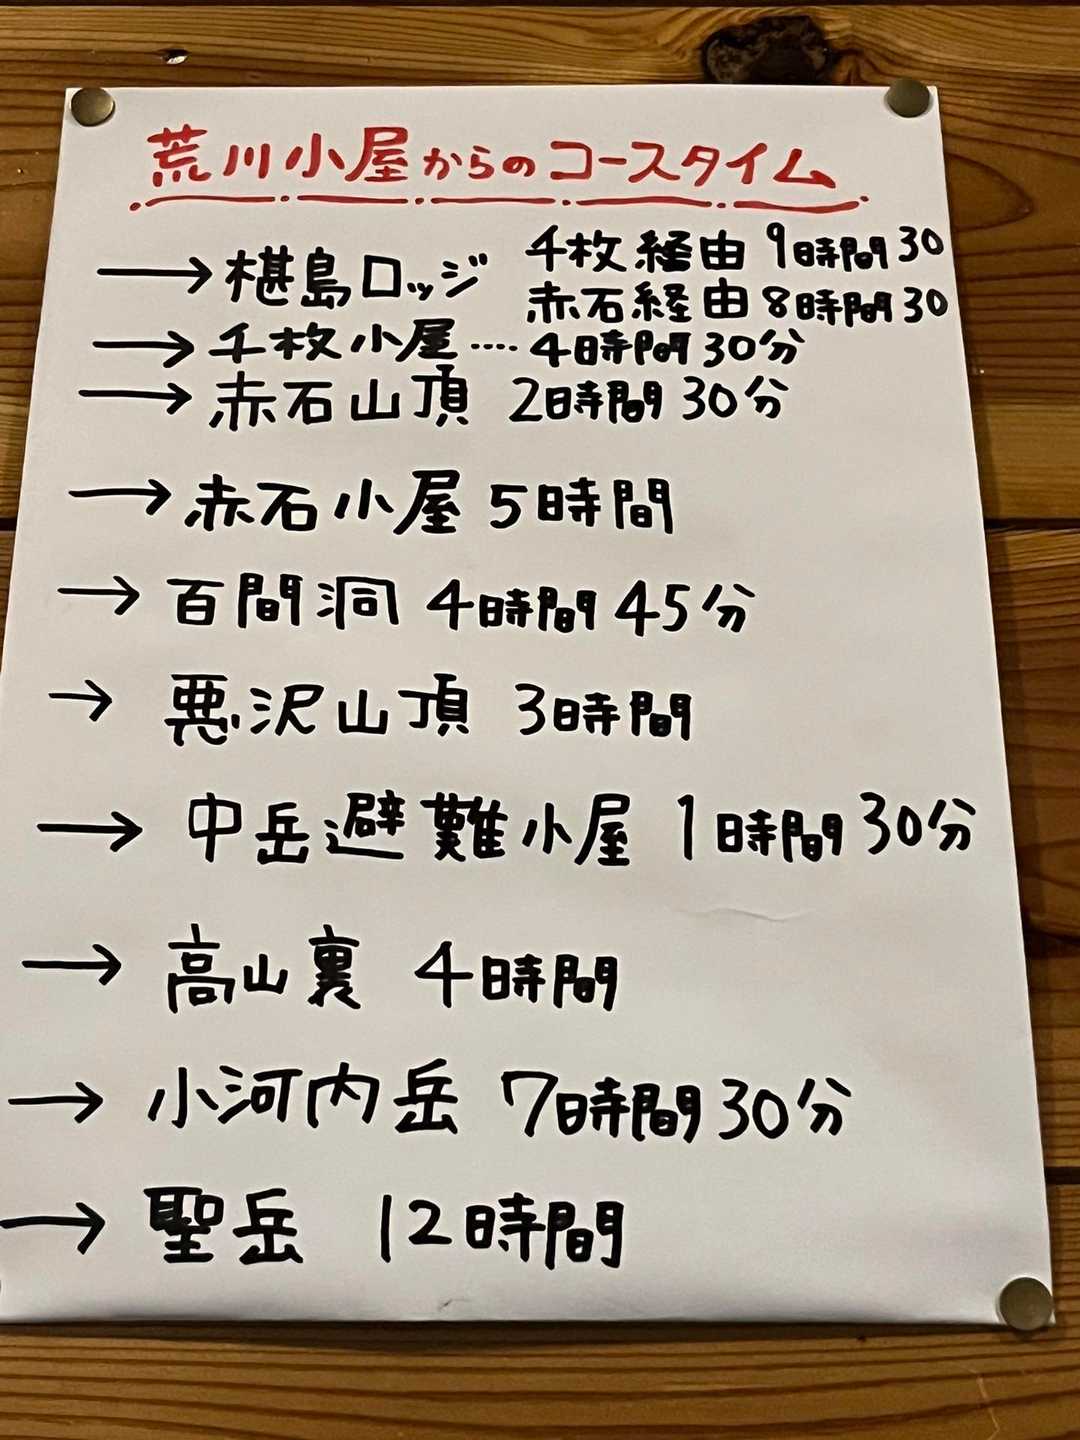 荒川小屋からのコースタイム
→椹島ロッジ 千枚経由 9時間30
赤石経由 8時間30
→千枚小屋‥‥4時間30分
→赤石山頂 2時間30分
→赤石小屋 5時間
→百間洞 4時間45分
→悪沢山頂 3時間
→中岳避難小屋 1時間30分
→高山裏 4時間
→小河内岳 7時間30分
→聖岳 12時間